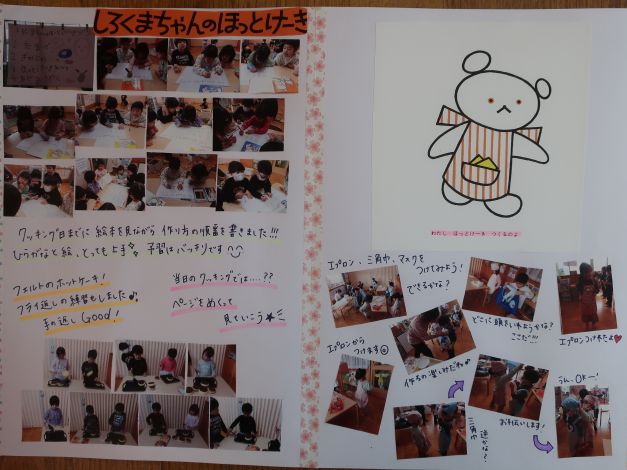 しろくまちゃんのほっとけーき
クッキング日までに 絵本を見ながら 作り方の順番を書きました!!!
ひらがなと絵、とっても上手 予習はバッチリです
フェルトのホットケーキ!
フライ返しの練習もしました♪
手の返し Good!
当日のクッキングでは....??
ページをめくって
見ていこう★
わたし ほっとけーき つくるのよ
エプロン、三角巾、マスクを
つけてみよう!
できるかな?
どこに頭をいれようかな?
ここだ!!!
エプロンつけれたよ♥
エプロンから
つけます
作るの楽しみだね♪
うん、OKー!
お手伝いします!
三角巾